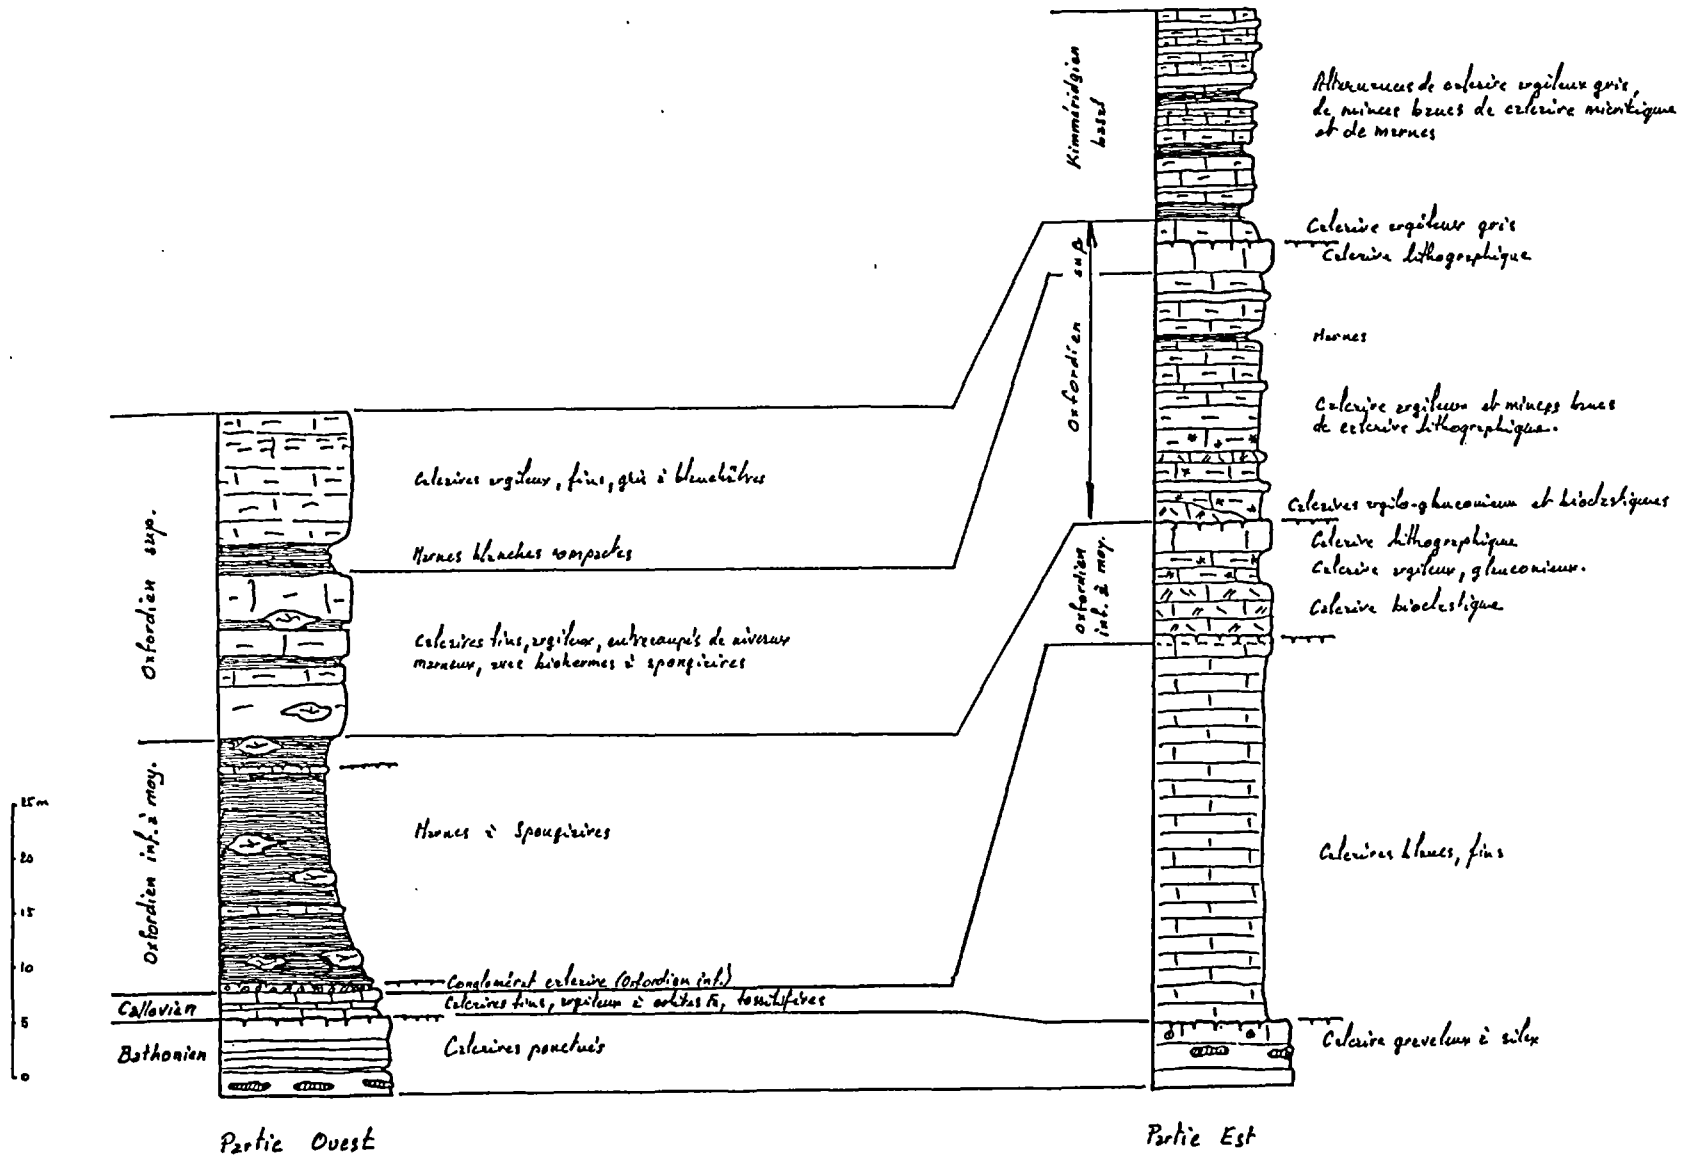 Kimméridgien
basal
Alternances de calcaire argileux gris,
de minces bancs de calcaire micritique
et de marnes
Calcaire argileux gris
Calcaire lithographique
Oxfordien sup
Marnes
Calcaire argileux et minces bancs
de calcaire lithographique.
Calcaires argilo-glauconieux et bioclastiques
Calcaire lithographique
Calcaire argileux, glauconieux.
Calcaire bioclastique
Oxfordien
inf. à moy.
Calcaires blancs, fins
Calcaire graveleux à silex
Partie Est
Oxfordien sup.
Calcaires argileux, fins, gris à blanchâtres
Marnes blanches compactes
Calcaires fins, argileux, entrecoupés de niveaux
marneux, avec biohermes à spongiaires
Oxfordien inf. à moy.
Marnes à Spongiaires
Conglomérat calcaire (Oxfordien inf.)
Callovien
Calcaires fins, argileux à oolites Fe, fossilifères
Bathonien
Calcaires ponctués
25m
20
15
10
5
0
Partie Ouest